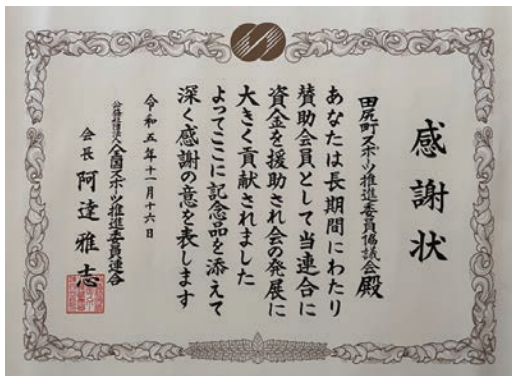 感謝状
田尻町スポーツ推進委員協議会殿
あなたは長期間にわたり
賛助会員として当連合に
資金を援助され会の発展に
大きく貢献されました
よってここに記念品を添えて
深く感謝の意を表します
令和五年十一月十六日
公益社団法人全国スポーツ推進委員連合
会長 阿達雅志